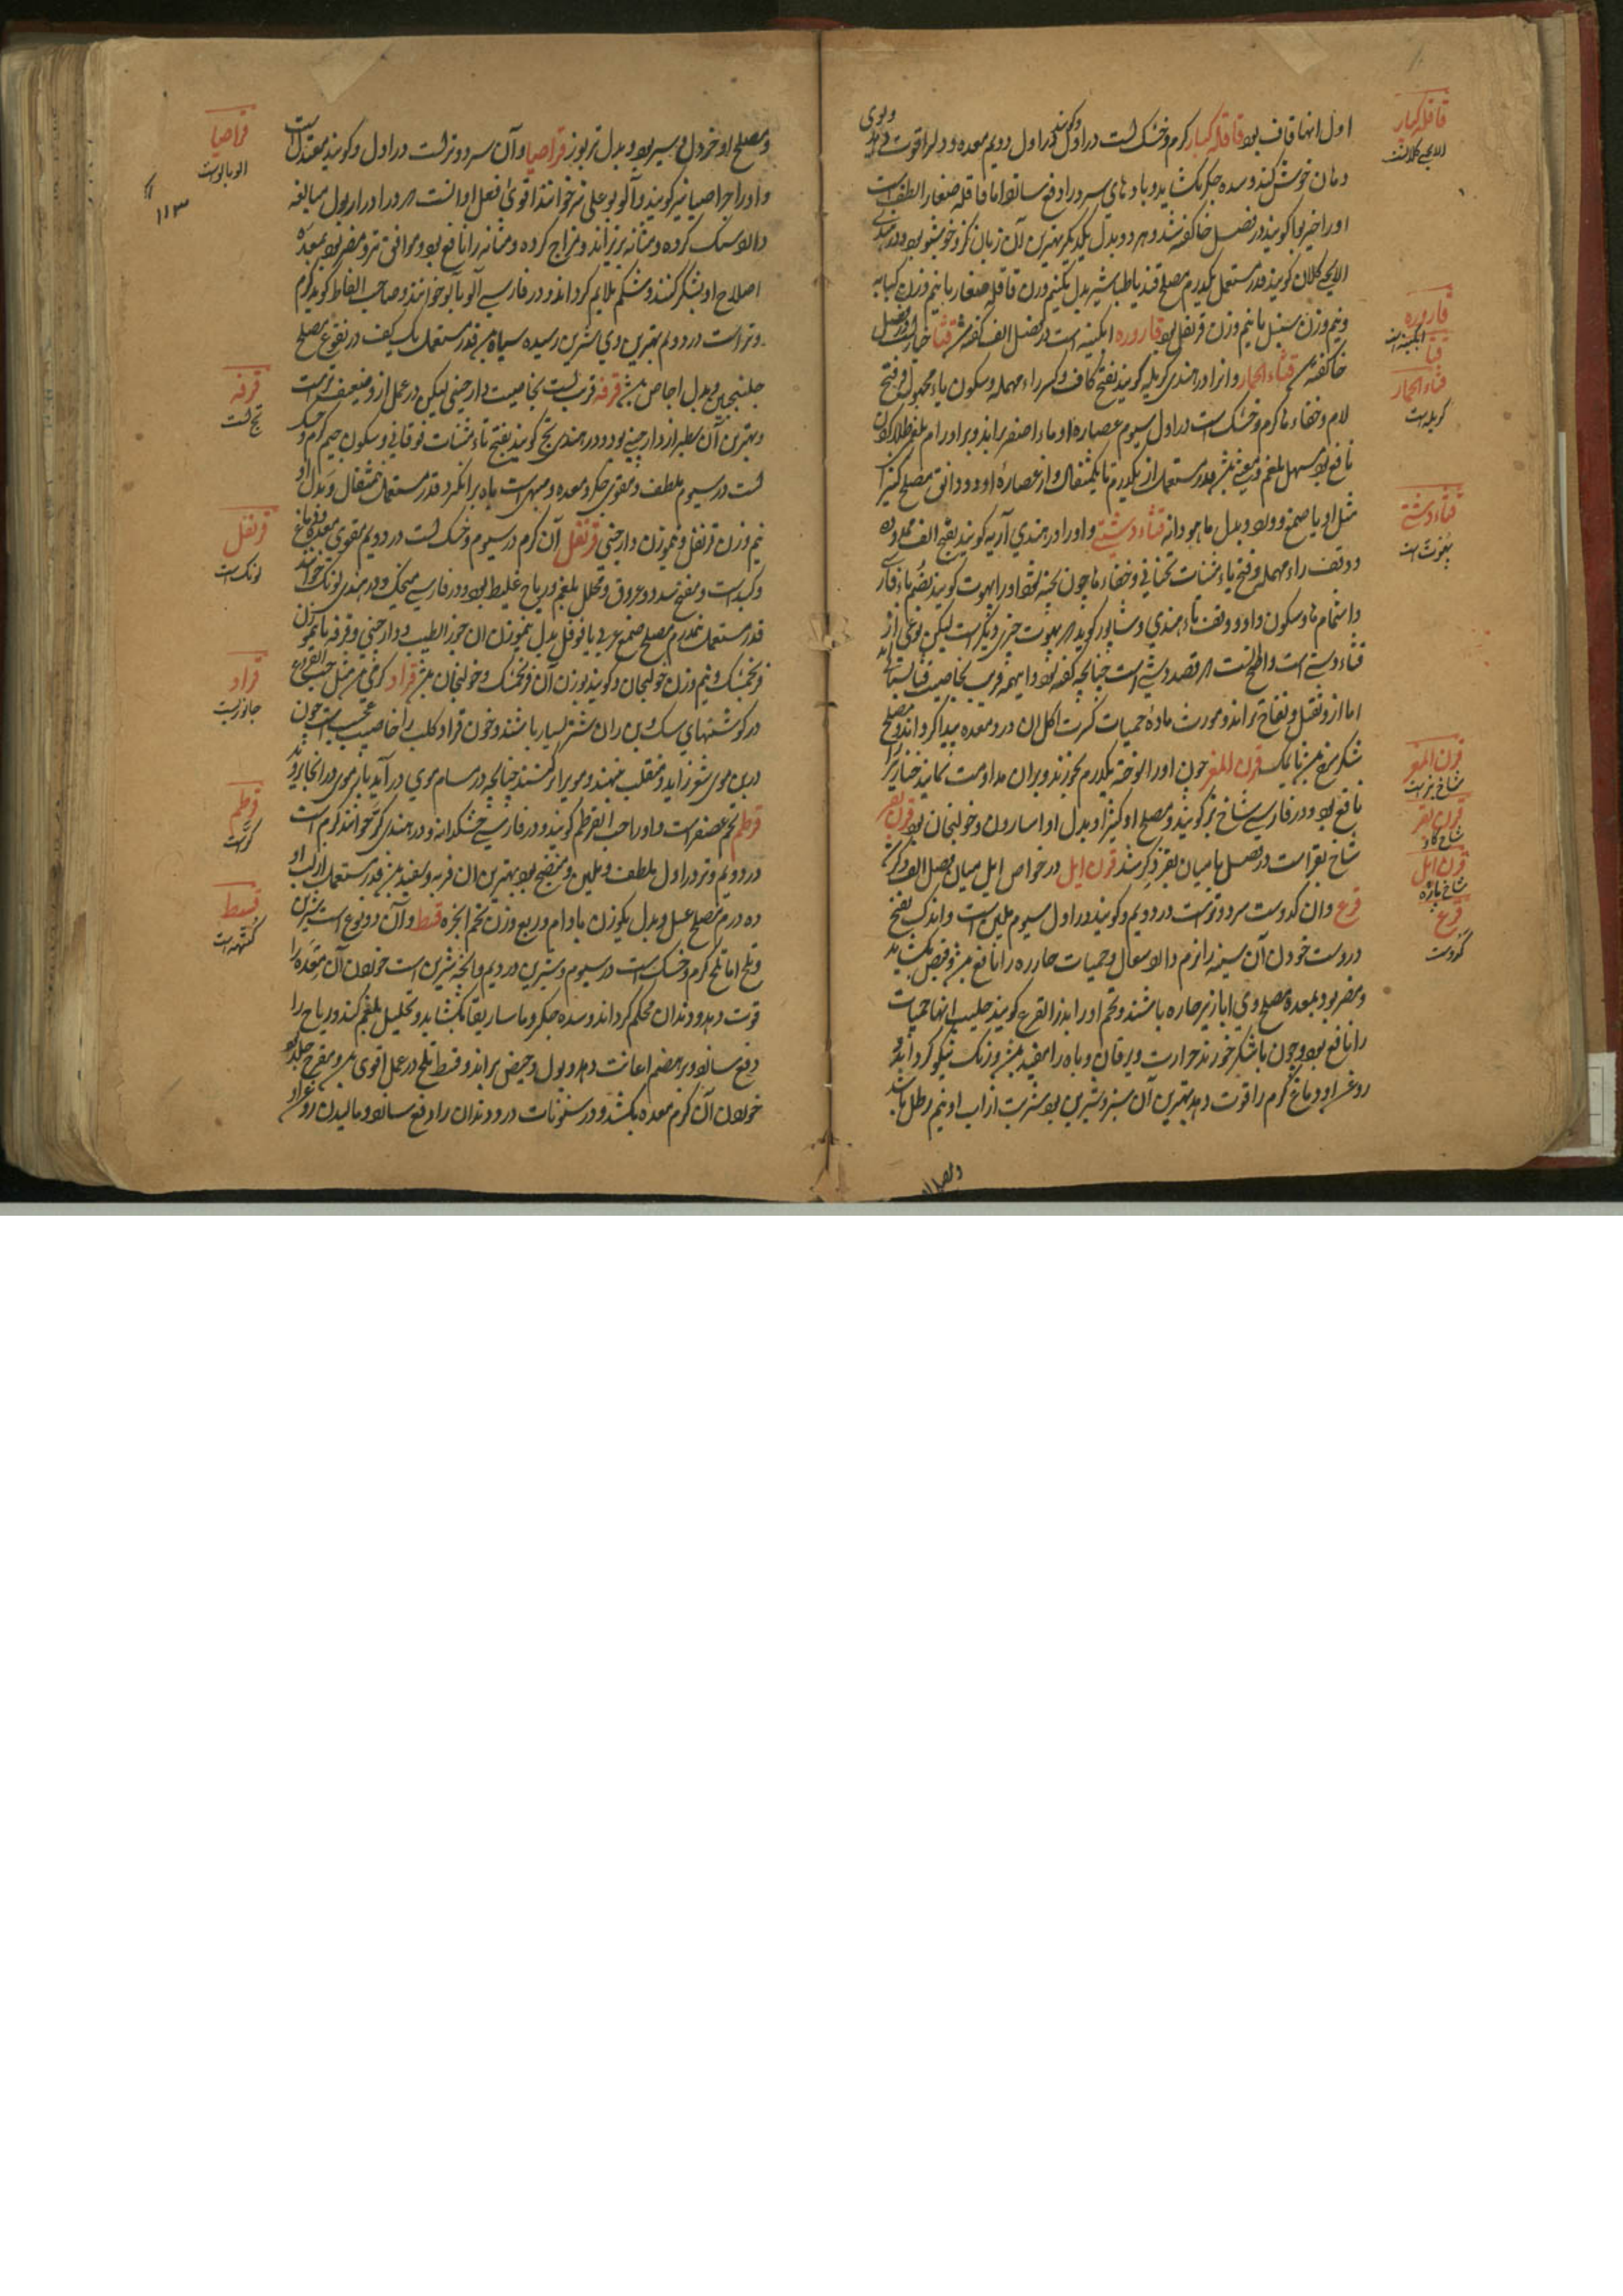 قاقله کبار
الایچی کلانست
اول انها قاف بود قاقله کبار گرم و خشک است در اول و گویند در اول دویم معده و دل را قوت دهد و بوی
دهان خوش کند و سده جگر بکشاید و بادهای سرد را دفع سازد اما قاقله صغار الطف است
اورا خیربوا گویند در فصل خا گفته شد و هر دو بدل یکدیگرند بهترین آن زبان گز و خوشبو بود و در هندی
الایچی کلان گویند قدر مستعمل یکدرم مصلح قند یا طباشیر بدل یکنیم وزن قاقله صغار یا نیم وزن کبابه
قاروره
ابگینه است
قثا
و نیم وزن سنبل یا نیم وزن قرنفل بود قاروره ابگینه است در فصل الف گفته شد قثا خیار در فصل
قثاء الحمار
کریله است
خا گفته شد قثاء الحمار و انرا در هندی کریله گویند بفتح کاف و کسر راء مهمله و سکون یاء مجهول و فتح
لام و خفاء ها گرم و خشک است در اول سیوم عصاره او ماده اصفر براند و بر اورام بلغم طلا کردن
نافع بود مسهل بلغم و مقئ باشد قدر مستعمل از یکدرم تا یکمثقال و از عصاره او دو دانق مصلح کتیرا
قثاء دشتی
پهوت است
مثل او یا صمغ و ورد و بدل ماهودانه قثاء دشتی و اورا در هندی آریه گویند بفتح الف ممدوده
و وقف راء مهمله و فتح یاء مثنات تحتانی و خفاء ها چون پخته شود اورا پهوت گویند بضم باء فارسی
و اشمام ها و سکون واو و وقف تاء هندی و شاپور گوید که پهوت چیزی دیگر است لیکن نوعی از
قثاء دشتی است و اطلح انست که قصد دشتی است چنانچه گفته بود و این همه قریب بخاصیت قثا بستانی اند
اما ازو ثقل و نفاخ تر اند و مورث ماده حمیات کثرت اکل ان درد معده پیدا گرداند و مصلح
قرن المعز
شاخ بز است
شکر سرخ یا نمک قرن المعز چون اورا سوخته یکدرم بخورند و بران مداومت نمایند خنازیر را
قرن بقر
شاخ گاو
نافع بود و در فارسی شاخ بز گویند و مصلح او کتیرا و بدل او اسارون و خولنجان بود قرن بقر
قرن ایل
شاخ پاژه
شاخ بقر است در فصل با میان بقر ذکر شد قرن ایل در خواص ایل میان فصل الف ذکر
قرع
کدوست
قرع وان کدوست سرد و تر است در دویم و گویند در اول سیوم ملین است و اندک نفخ
دروست خوردن آن سینه را نرم دارد و سعال و حمیات حاره را نافع باشد و قبض بکشاید
و مضر بود بمعده مصلح وی ابازیر حاره باشند و تخم اورا بذر القرع گویند حلیب انها حمیات
را نافع بود و چون با شکر خورند حرارت و یرقان و باه را مفید باشد و رنگ نیکو گرداند و
روغن او دماغ گرم را قوت دهد بهترین آن سبز و شیرین بود شربت از اب او نیم رطل باشد
قراصیا
الوبالوست
۱۱۳
و مصلح او خردل و سیر بود و بدل تربوز قراصیا و آن سرد و تر است در اول و گویند معتدل است
و اورا جراصیا نیز گویند و آلو بوعلی نیز خوانند اقوی فعل او انست که در ادرار بول مبالغه
دارد سنگ گرده و مثانه بریزاند و مزاج گرده و مثانه را نافع بود و موافق تر و مضر بود بمعده
اصلاح او بشکر کنند و شکم ملایم گرداند و در فارسی آلو بالو خوانند و صاحب الفاظ گوید گرم
و تر است در دویم بهترین وی شیرین رسیده سیاه بود قدر مستعمل یک کیف در نقوع مصلح
قرفه
تج است
جلنجبین و بدل اجاص باشد قرفه قریب است بخاصیت دارچینی لیکن در عمل ازو ضعیف تر است
و بهترین آن سطبر از دارچینی بود و در هندی تج گویند بفتح تاء مثنات فوقانی و سکون جیم گرم و خشک
است در سیوم ملطف و مقوی جگر و معده و مبهی است باه برانگیزد قدر مستعمل نیم مثقال و بدل او
قرنفل
لونگ است
نیم وزن قرنفل و نیم وزن دارچینی قرنفل آن گرم در سیوم و خشک است در دویم مقوی معده و دماغ
و کبد است و مفتح سدد و عروق و محلل بلغم و ریاح غلیظ بود و در فارسی میخک و در هندی لونگ خوانند
قدر مستعمل نیمدرم مصلح صمغ عربی یا فوفل بدل نیم وزن ان جوز الطیب و دارچینی و قرفه یا نیم وزن
قراد
جانوریست
فرنجمشک و نیم وزن خولنجان و گویند بوزن آن فرنجمشک و خولنجان باشد قراد کرمی است مثل حب القرع
در گوشتهای سگ و بن ران شتر بسیار باشند و خون قراد کلب را خاصیت عجیب است چون
در بن موی شعر زاید و منقلب نهند و مو را برکنند چنانچه در مسام موی در آید باز موی در انجا نروید
قرطم
کر است
قرطم تخم عصفر است و اورا حب القرطم گویند و در فارسی خشکدانه و در هندی کر خوانند گرم است
در دویم و تر در اول ملطف و ملین و منضج بود بهترین ان فربه و سفید باشد قدر مستعمل از لب او
قسط
کتهه است
ده درم مصلح عسل و بدل یکوزن بادام و ربع وزن تخم انجره قسط و آن دو نوع است شیرین
و تلخ اما تلخ گرم و خشک است در سیوم و شیرین در دویم و انچه شیرین است خوردن آن معده را
قوت دهد و دندان محکم گرداند و سده جگر و ماساریقا بکشاید و تحلیل بلغم کند و ریاح را
دفع سازد و بر هضم اعانت دهد و بول و حیض براند و قسط تلخ در عمل اقوی بود و مقرح جلد بود
خوردن آن کرم معده بکشد و در سنونات درد دندان را دفع سازد و مالیدن روغن او